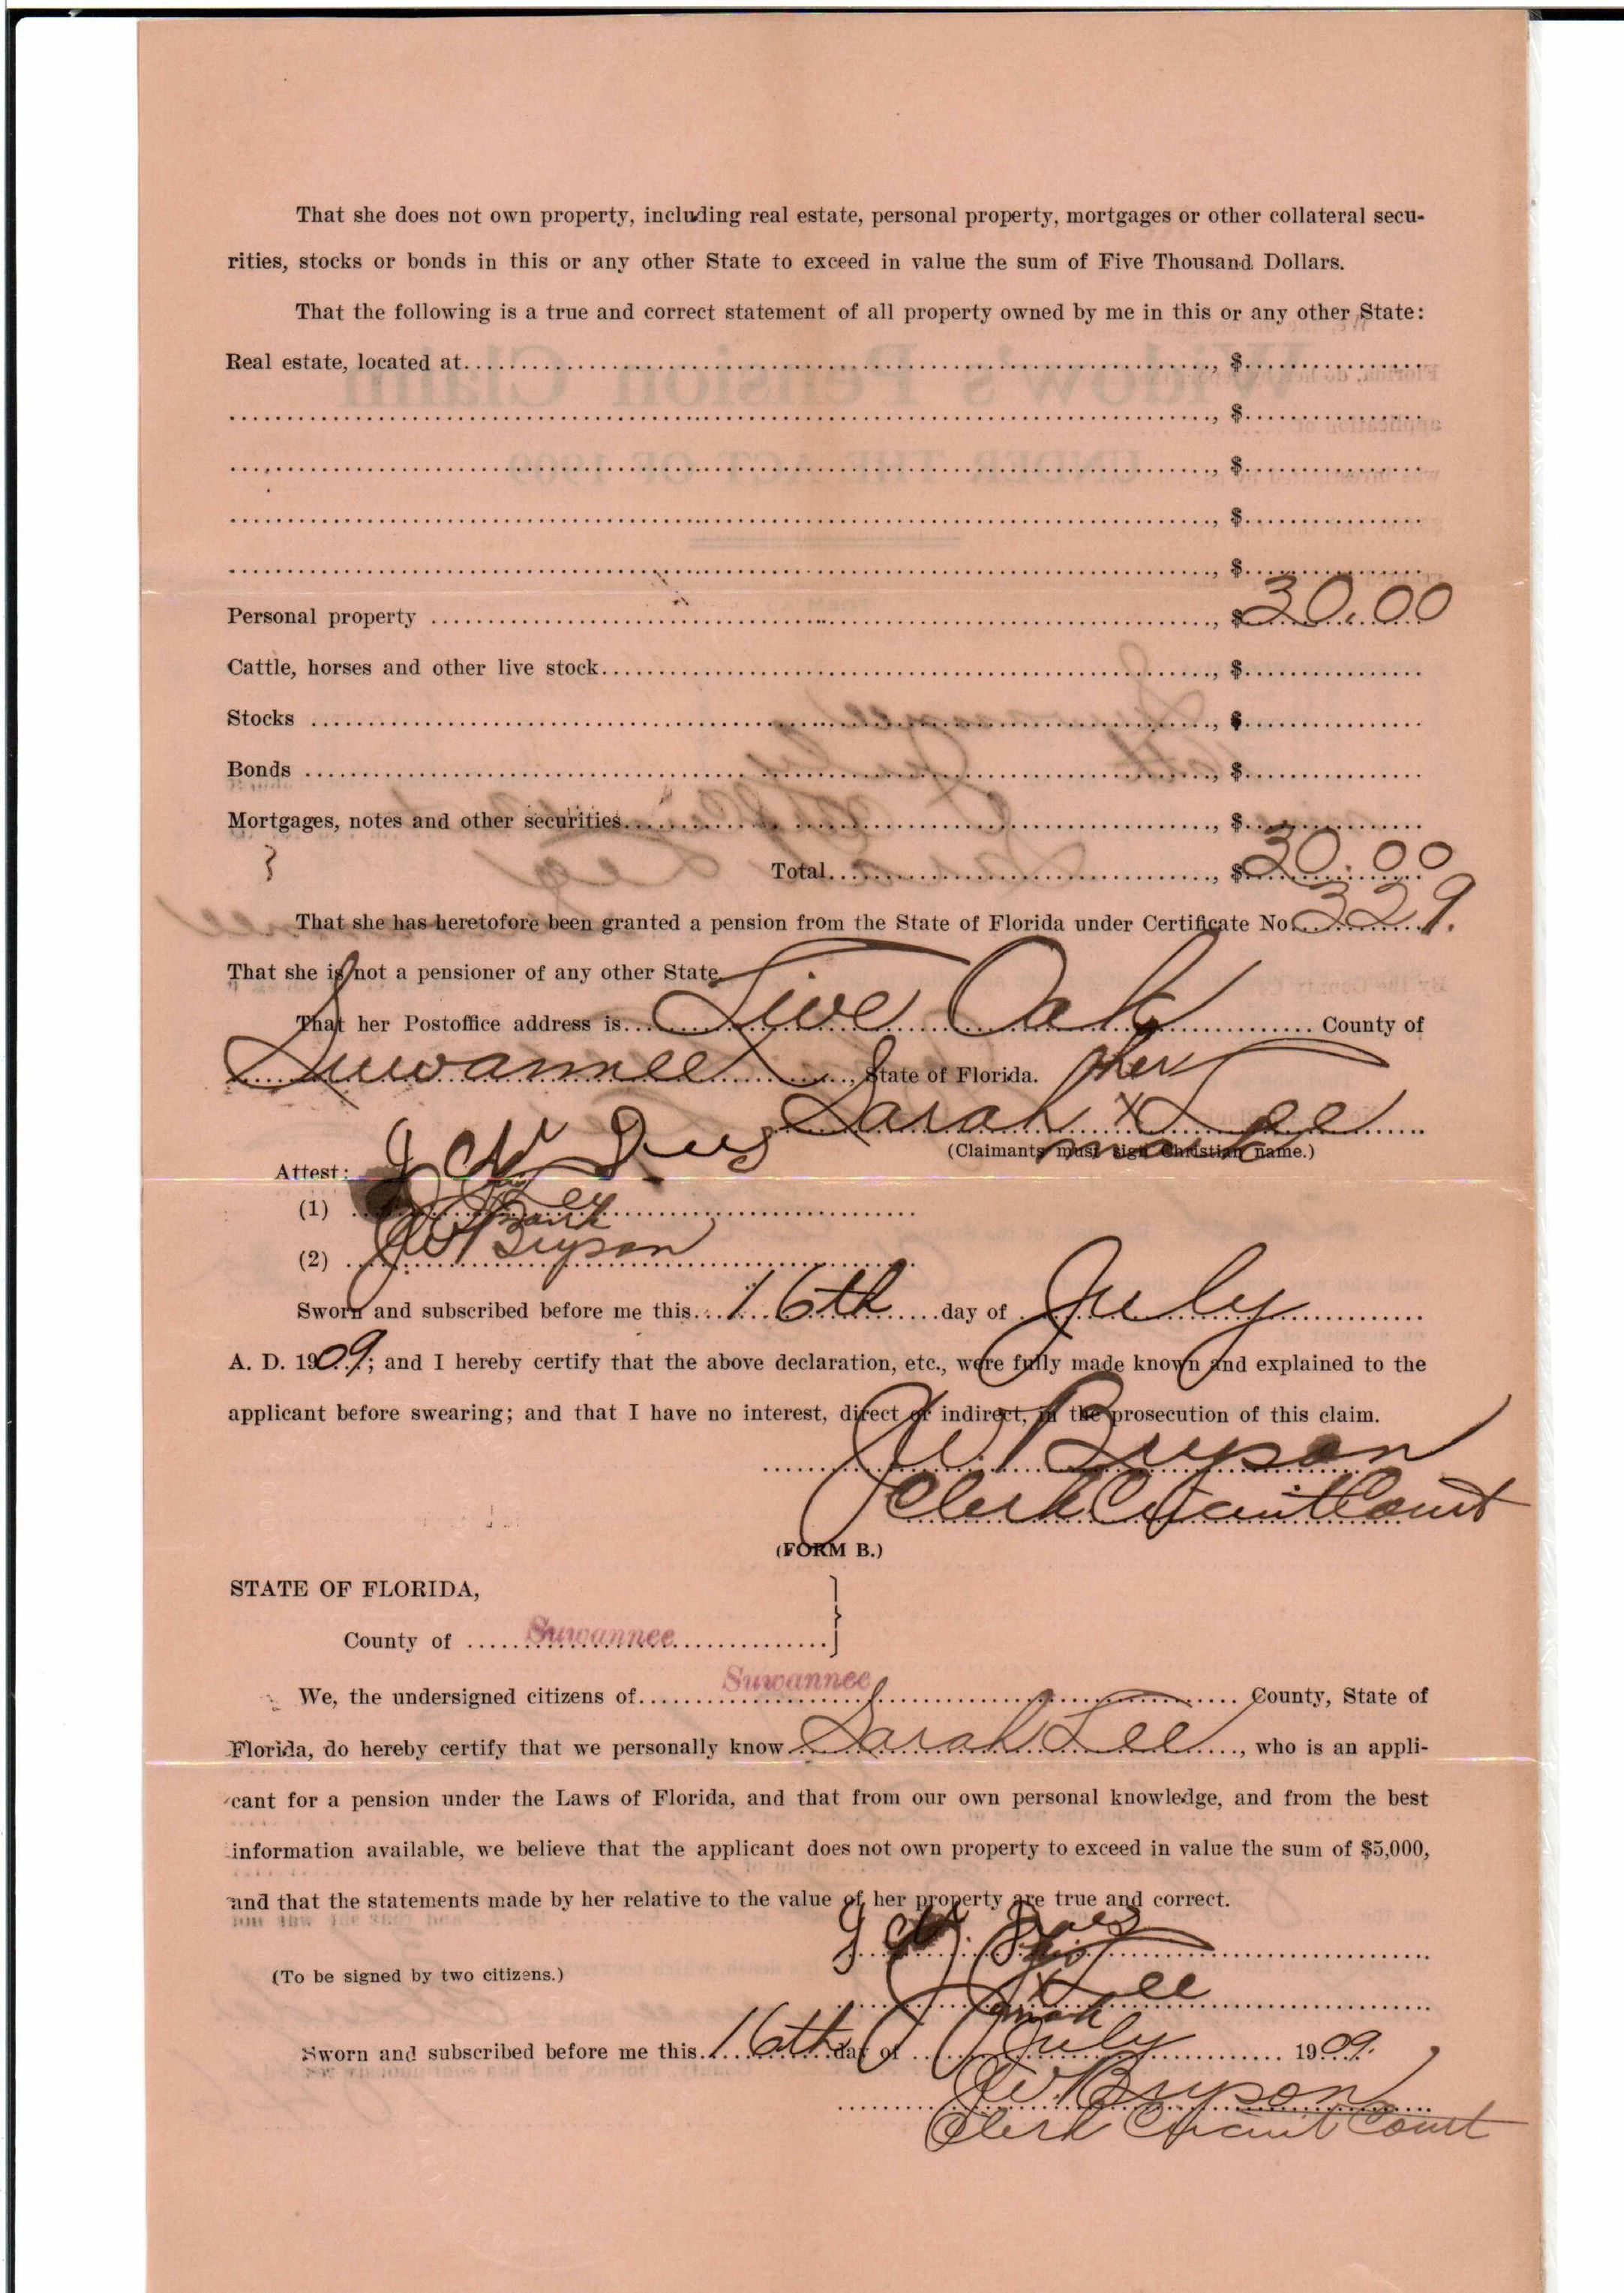 That she does not own property, including real estate, personal property, mortgages or other collateral secu-
rities, stocks or bonds in this or any other State to exceed in value the sum of Five Thousand Dollars.
That the following is a true and correct statement of all property owned by me in this or any other State:
Real estate, located at, $
, $
, $
, $
, $
Personal property, $30.00
Cattle, horses and other live stock, $
Stocks, $
Bonds, $
Mortgages, notes and other securities, $
Total, $30.00
That she has heretofore been granted a pension from the State of Florida under Certificate No. 329.
That she is not a pensioner of any other State.
That her Postoffice address is Live Oak County of
Suwannee, State of Florida. her
Sarah x Lee
(Claimants must sign Christian name.) mark
Attest:
(1)
(2) J W Bryson
Sworn and subscribed before me this 16th day of July
A. D. 1909; and I hereby certify that the above declaration, etc., were fully made known and explained to the
applicant before swearing; and that I have no interest, direct or indirect, in the prosecution of this claim.
J W Bryson
Clerk Circuit Court
(FORM B.)
STATE OF FLORIDA,
County of Suwannee
We, the undersigned citizens of Suwannee County, State of
Florida, do hereby certify that we personally know Sarah Lee, who is an appli-
cant for a pension under the Laws of Florida, and that from our own personal knowledge, and from the best
information available, we believe that the applicant does not own property to exceed in value the sum of $5,000,
and that the statements made by her relative to the value of her property are true and correct.
(To be signed by two citizens.)
x Lee
mark
Sworn and subscribed before me this 16th day of July 1909.
J W. Bryson
Clerk Circuit Court